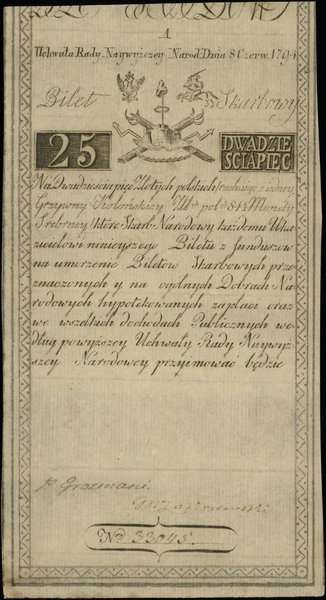 A
Uchwała Rady Naywyższey Narod: Dnia 8 Czerw. 1794
Bilet Skarbowy
25 DWADZIE
SCIAPIEC
Na Dwadzieścia pięc Złotych polskich rachuiąc z iedney
Grzywny Kolońskiey Zł. pol. 84½ Monety
Srebrney któro Skarb Narodowy każdemu Uka-
zicielowi ninieyszego Biletu z funduszow
na umorzenie Biletów Skarbowych prze-
znaczonych y na ogulnych Dobrach Na-
rodowych hypotekowanych zapłaci oraz
we wszelkich dochodach Publicznych we-
dług powyższey Uchwały Rady Naywyż-
szey Narodowey przyimować będzie
P. Grozmani.
N.ro 33045.